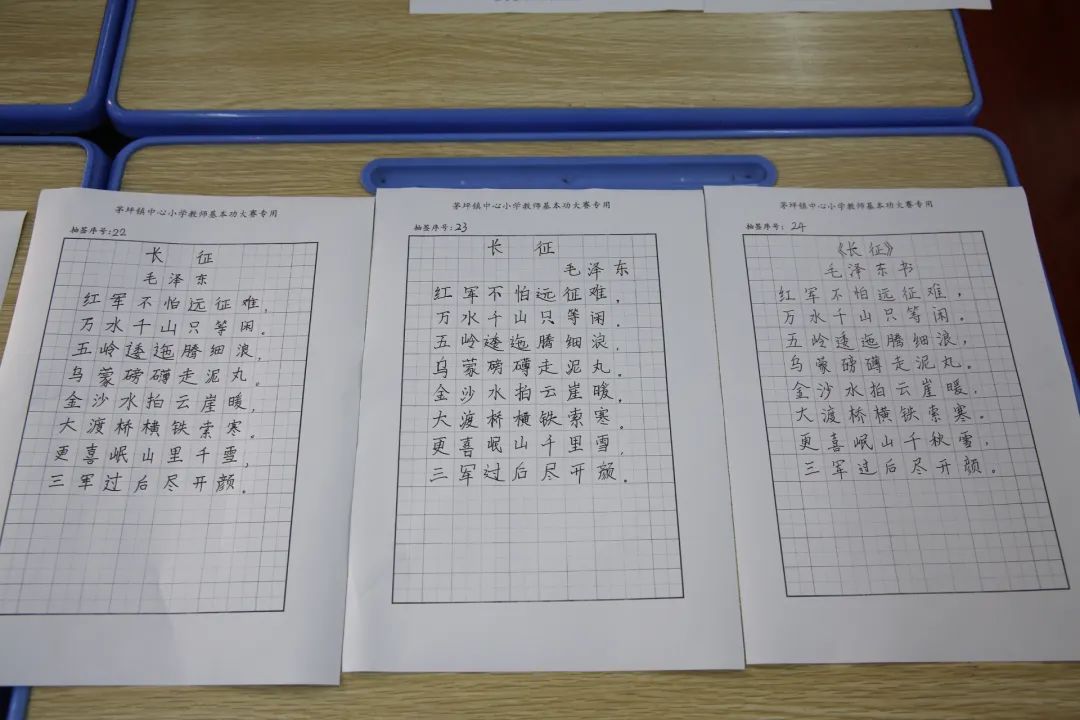 茅坪镇中心小学教师基本功大赛专用
抽签序号:22
长 征
毛泽东
红军不怕远征难,
万水千山只等闲。
五岭逶迤腾细浪,
乌蒙磅礴走泥丸。
金沙水拍云崖暖,
大渡桥横铁索寒。
更喜岷山里千雪,
三军过后尽开颜。
茅坪镇中心小学教师基本功大赛专用
抽签序号:23
长 征
毛泽东
红军不怕远征难,
万水千山只等闲。
五岭逶迤腾细浪,
乌蒙磅礴走泥丸。
金沙水拍云崖暖,
大渡桥横铁索寒。
更喜岷山千里雪,
三军过后尽开颜。
茅坪镇中心小学教师基本功大赛专用
抽签序号:24
《长征》
毛泽东书
红军不怕远征难,
万水千山只等闲。
五岭逶迤腾细浪,
乌蒙磅礴走泥丸。
金沙水拍云崖暖,
大渡桥横铁索寒。
更喜岷山千秋雪,
三军过后尽开颜。